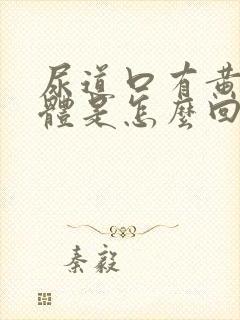 尿道口有黃
體是怎麼回
秦毅